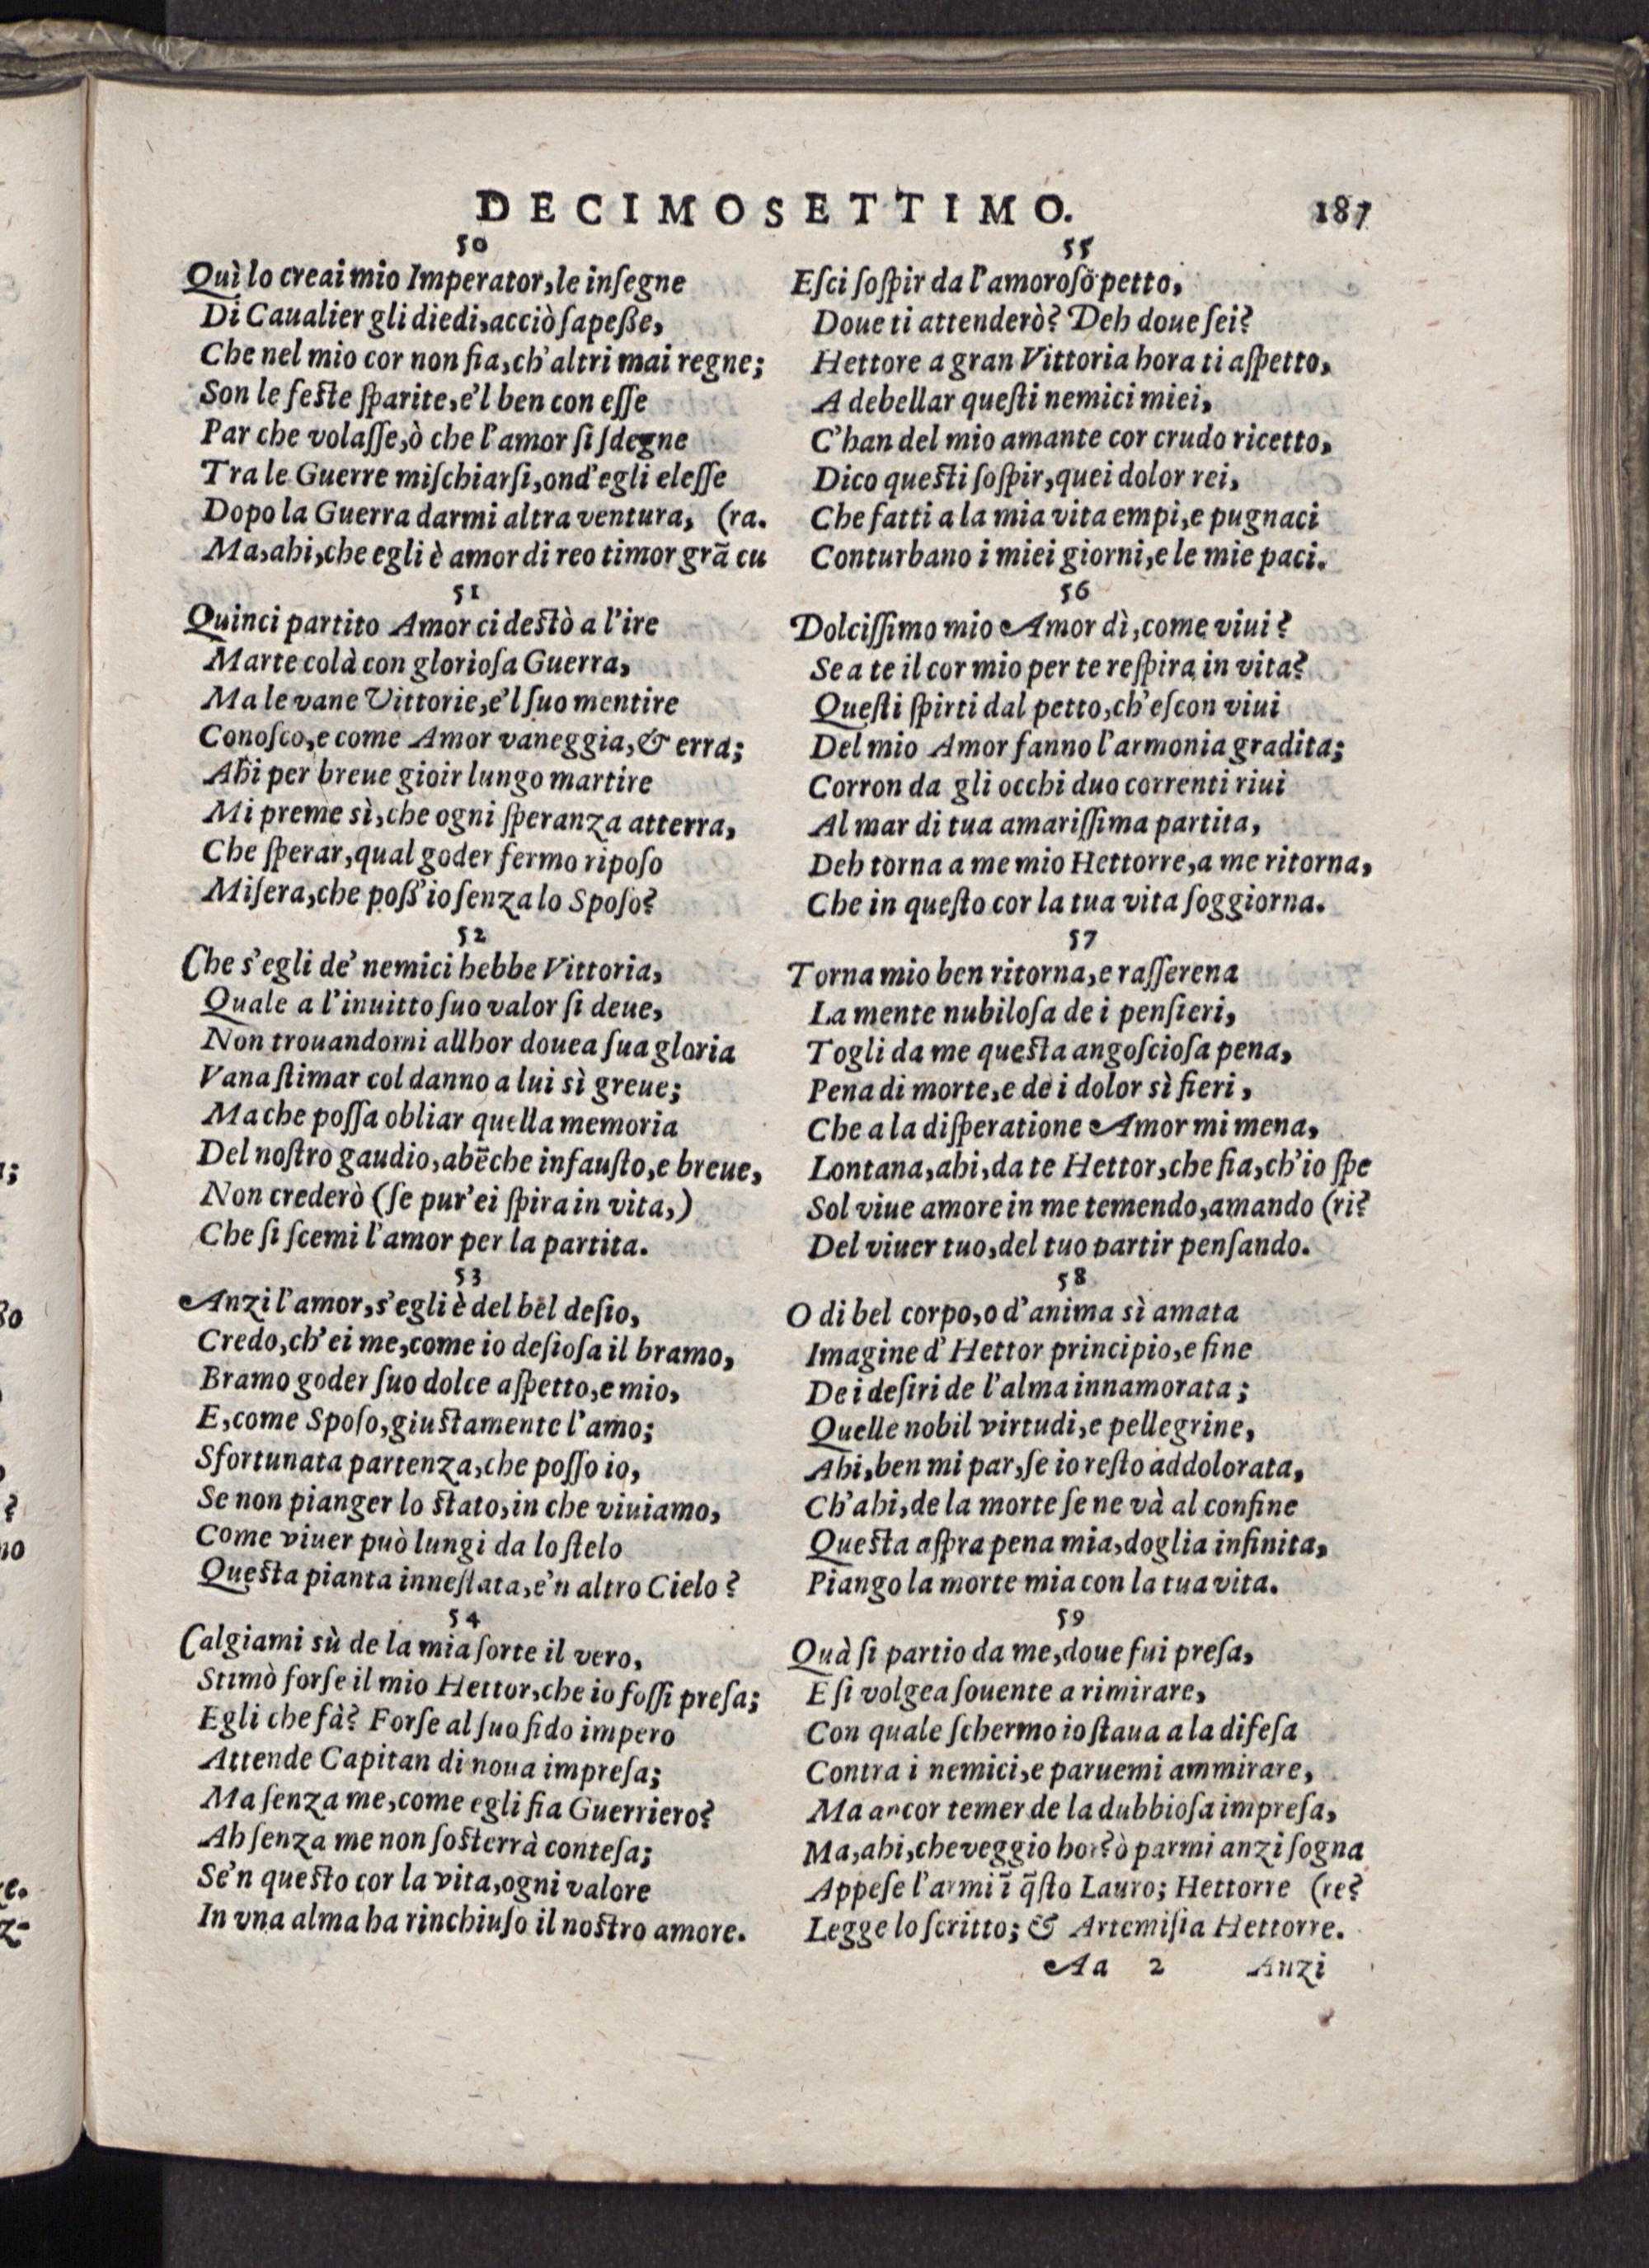 DECIMOSETTIMO. 187
50
Quì lo creai mio Imperator, le inſegne
Di Caualier gli diedi, acciò ſapeße,
Che nel mio cor non fia, ch'altri mai regne;
Son le feste ſparite, e'l ben con eſſe
Par che volaſſe, ò che l'amor ſi ſdegne
Tra le Guerre miſchiarſi, ond'egli eleſſe
Dopo la Guerra darmi altra ventura, (ra.
Ma, ahi, che egli è amor di reo timor grã cu
51
Quinci partito Amor ci destò a l'ire
Marte colà con glorioſa Guerra,
Ma le vane Vittorie, e'l ſuo mentire
Conoſco, e come Amor vaneggia, & erra;
Ahi per breue gioir lungo martire
Mi preme sì, che ogni ſperanza atterra,
Che ſperar, qual goder fermo ripoſo
Miſera, che poß'io ſenza lo Spoſo?
52
Che s'egli de' nemici hebbe Vittoria,
Quale a l'inuitto ſuo valor ſi deue,
Non trouandomi allhor douea ſua gloria
Vana ſtimar col danno a lui sì greue;
Ma che poſſa obliar quella memoria
Del noſtro gaudio, abẽche infauſto, e breue,
Non crederò (ſe pur'ei ſpira in vita,)
Che ſi ſcemi l'amor per la partita.
53
Anzi l'amor, s'egli è del bel deſio,
Credo, ch'ei me, come io deſioſa il bramo,
Bramo goder ſuo dolce aſpetto, e mio,
E, come Spoſo, giustamente l'amo;
Sfortunata partenza, che poſſo io,
Se non pianger lo stato, in che viuiamo,
Come viuer può lungi da lo ſtelo
Questa pianta inneſtata, e'n altro Cielo?
54
Calgiami sù de la mia ſorte il vero,
Stimò forſe il mio Hettor, che io foſſi preſa;
Egli che fà? Forſe al ſuo fido impero
Attende Capitan di noua impreſa;
Ma ſenza me, come egli fia Guerriero?
Ah ſenza me non ſosterrà conteſa;
Se'n questo cor la vita, ogni valore
In vna alma ha rinchiuſo il nostro amore.
55
Eſci ſoſpir da l'amoroſo petto,
Doue ti attenderò? Deh doue ſei?
Hettore a gran Vittoria hora ti aſpetto,
A debellar queſti nemici miei,
C'han del mio amante cor crudo ricetto,
Dico questi ſoſpir, quei dolor rei,
Che fatti a la mia vita empi, e pugnaci
Conturbano i miei giorni, e le mie paci.
56
Dolciſſimo mio Amor dì, come viui?
Se a te il cor mio per te reſpira in vita?
Queſti ſpirti dal petto, ch'eſcon viui
Del mio Amor fanno l'armonia gradita;
Corron da gli occhi duo correnti riui
Al mar di tua amariſſima partita,
Deh torna a me mio Hettorre, a me ritorna,
Che in queſto cor la tua vita ſoggiorna.
57
Torna mio ben ritorna, e raſſerena
La mente nubiloſa de i penſieri,
Togli da me questa angoſcioſa pena,
Pena di morte, e de i dolor sì fieri,
Che a la diſperatione Amor mi mena,
Lontana, ahi, da te Hettor, che fia, ch'io ſpe
Sol viue amore in me temendo, amando (ri?
Del viuer tuo, del tuo partir penſando.
58
O di bel corpo, o d'anima sì amata
Imagine d'Hettor principio, e fine
De i deſiri de l'alma innamorata;
Quelle nobil virtudi, e pellegrine,
Ahi, ben mi par, ſe io reſto addolorata,
Ch'ahi, de la morte ſe ne và al confine
Questa aſpra pena mia, doglia infinita,
Piango la morte mia con la tua vita.
59
Quà ſi partio da me, doue fui preſa,
E ſi volgea ſouente a rimirare,
Con quale ſchermo io ſtaua a la difeſa
Contra i nemici, e paruemi ammirare,
Ma ancor temer de la dubbioſa impreſa,
Ma, ahi, che veggio hor? ò parmi anzi ſogna
Appeſe l'armi ĩ q̃ſto Lauro; Hettorre (re?
Legge lo ſcritto; & Artemiſia Hettorre.
Aa 2 Anzi